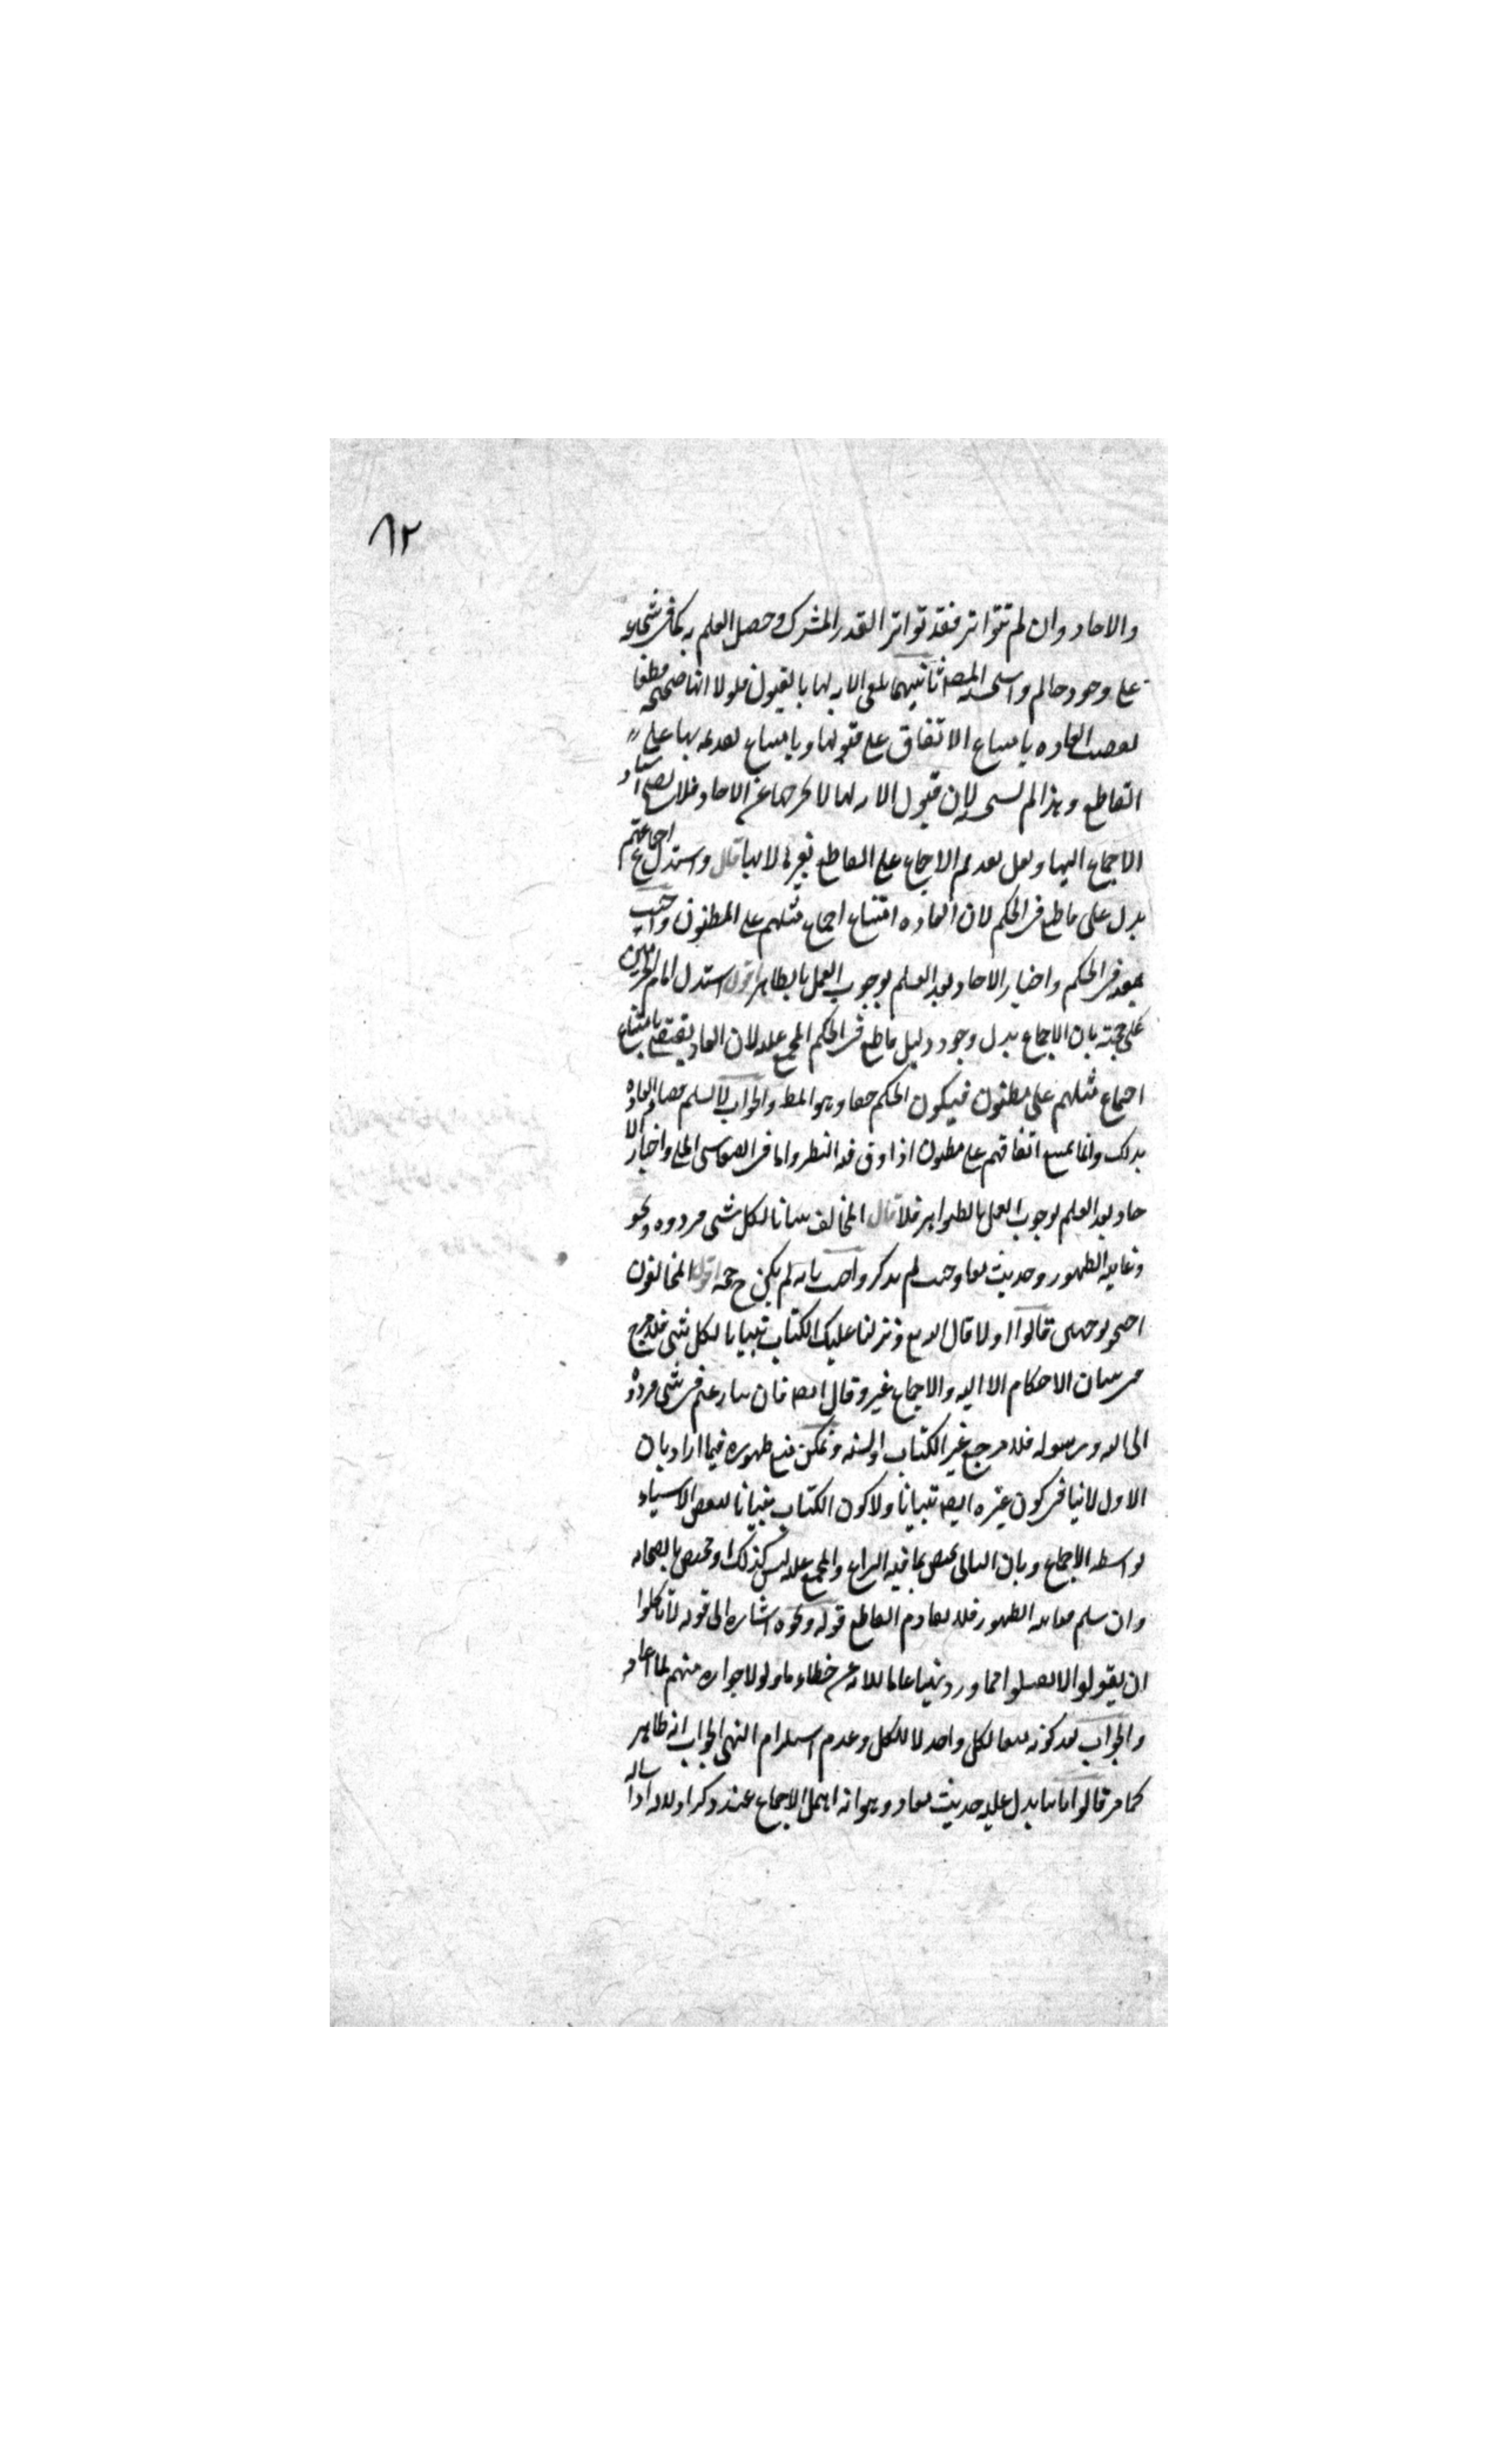 ٨٢
والاحاد وان لم تتواتر فقد تواتر القدر المشترك وحصل العلم به كما في شجاعة
علي وجود حاتم واستحسنه المصنف ثانيهما تلقي الامة لها بالقبول فلولا انها صحيحة قطعا
لقضت العادة بامتناع الاتفاق على قبولها وبامتناع تقديمها على
القاطع وهذا لم يستحسنه لان قبول الامة لها لا يخرجها عن الاحاد فلا يصح اسناد
الاجماع اليها ولعل تقديم الاجماع على القاطع بغيرها لا بها قال واستدل اجماعهم
يدل على قاطع في الحكم لان العادة امتناع اجماع مثلهم على المظنون واجيب
بمنعه في الحكم واخبار الاحاد بعد العلم بوجوب العمل بالظاهر اقول استدل امام الحرمين
على حجيته بان الاجماع يدل وجود دليل قاطع في الحكم المجمع عليه لان العادة يقتضي بامتناع
اجماع مثلهم على مظنون فيكون الحكم حقا وهو المط والجواب لا نسلم قضاء العادة
بذلك وانما يمنع اتفاقهم على مظنون اذا دق فيه النظر واما في القياس الجلي واخبار الا
حاد بعد العلم بوجوب العمل بالظواهر فلا قال المخالف تبيانا لكل شي فردوه ونحو
وغايته الظهور وحديث معاذ حيث لم يذكر واجيب بانه لم يكن ح حجة اقول المخالفون
احتجوا بوجهين قالوا اولا قال الله تع ونزلنا عليك الكتاب تبيانا لكل شي فلا مرجع
في بيان الاحكام الا اليه والاجماع غيره وقال ايضا فان تنازعتم في شي فردوه
الى الله ورسوله فلا مرجع غير الكتاب والسنة ويمكن منع ظهوره فيما اراد بان
الاول لا ينافي كون غيره ايضا تبيانا ولا كون الكتاب تبيانا لبعض الاشياء
بواسطة الاجماع وبان الثاني يختص بما فيه النزاع والمجمع عليه ليس كذلك او مختص بالصحابة
وان سلم فغايته الظهور فلا يصادم القاطع قوله ونحوه اشارة الى قوله لا تأكلوا
ان يقولوا الا تقتلوا مما ورد نهيا عاما للامة عن خطاء ما ولولا جوازه منهم لما افاد
والجواب بعد كونه منعا لكل واحد لا للكل وعدم استلزام النهي الجواز انه ظاهر
كما مر قالوا ثانيا يدل عليه حديث معاذ وهو انه اهمل الاجماع عند ذكر الادلة اذ ساله